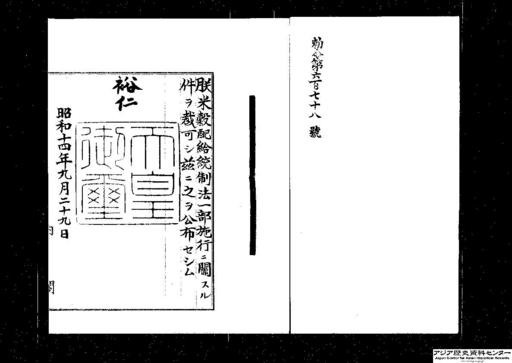 勅令第六百七十八號
朕米穀配給統制法一部施行ニ關スル
件ヲ裁可シ茲ニ之ヲ公布セシム
裕仁
天皇
御璽
昭和十四年九月二十九日
内閣
アジア歴史資料センター
Japan Center for Asian Historical Records